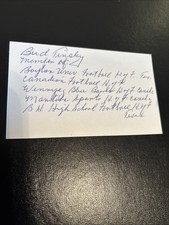 Bud Tinsley
member of
Baylor Univ Football H.g.t. Tex
Canadian Football H.g.t
Winnipeg Blue Bombers H.g.t Canada
Manitoba Sports H.g.t Canada
High School Football H.g.t